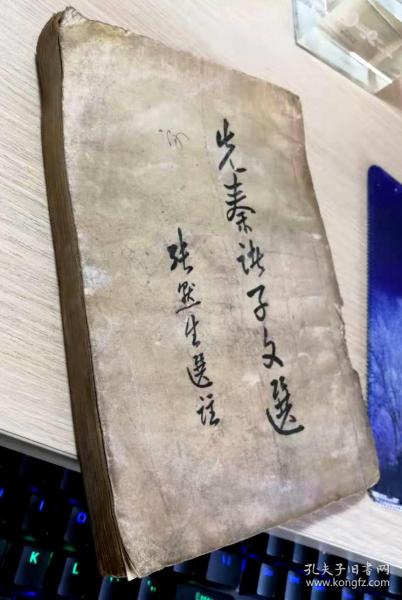 先秦諸子文選
張默生選註
I
O
K
L
孔夫子旧书网
www.kongfz.com